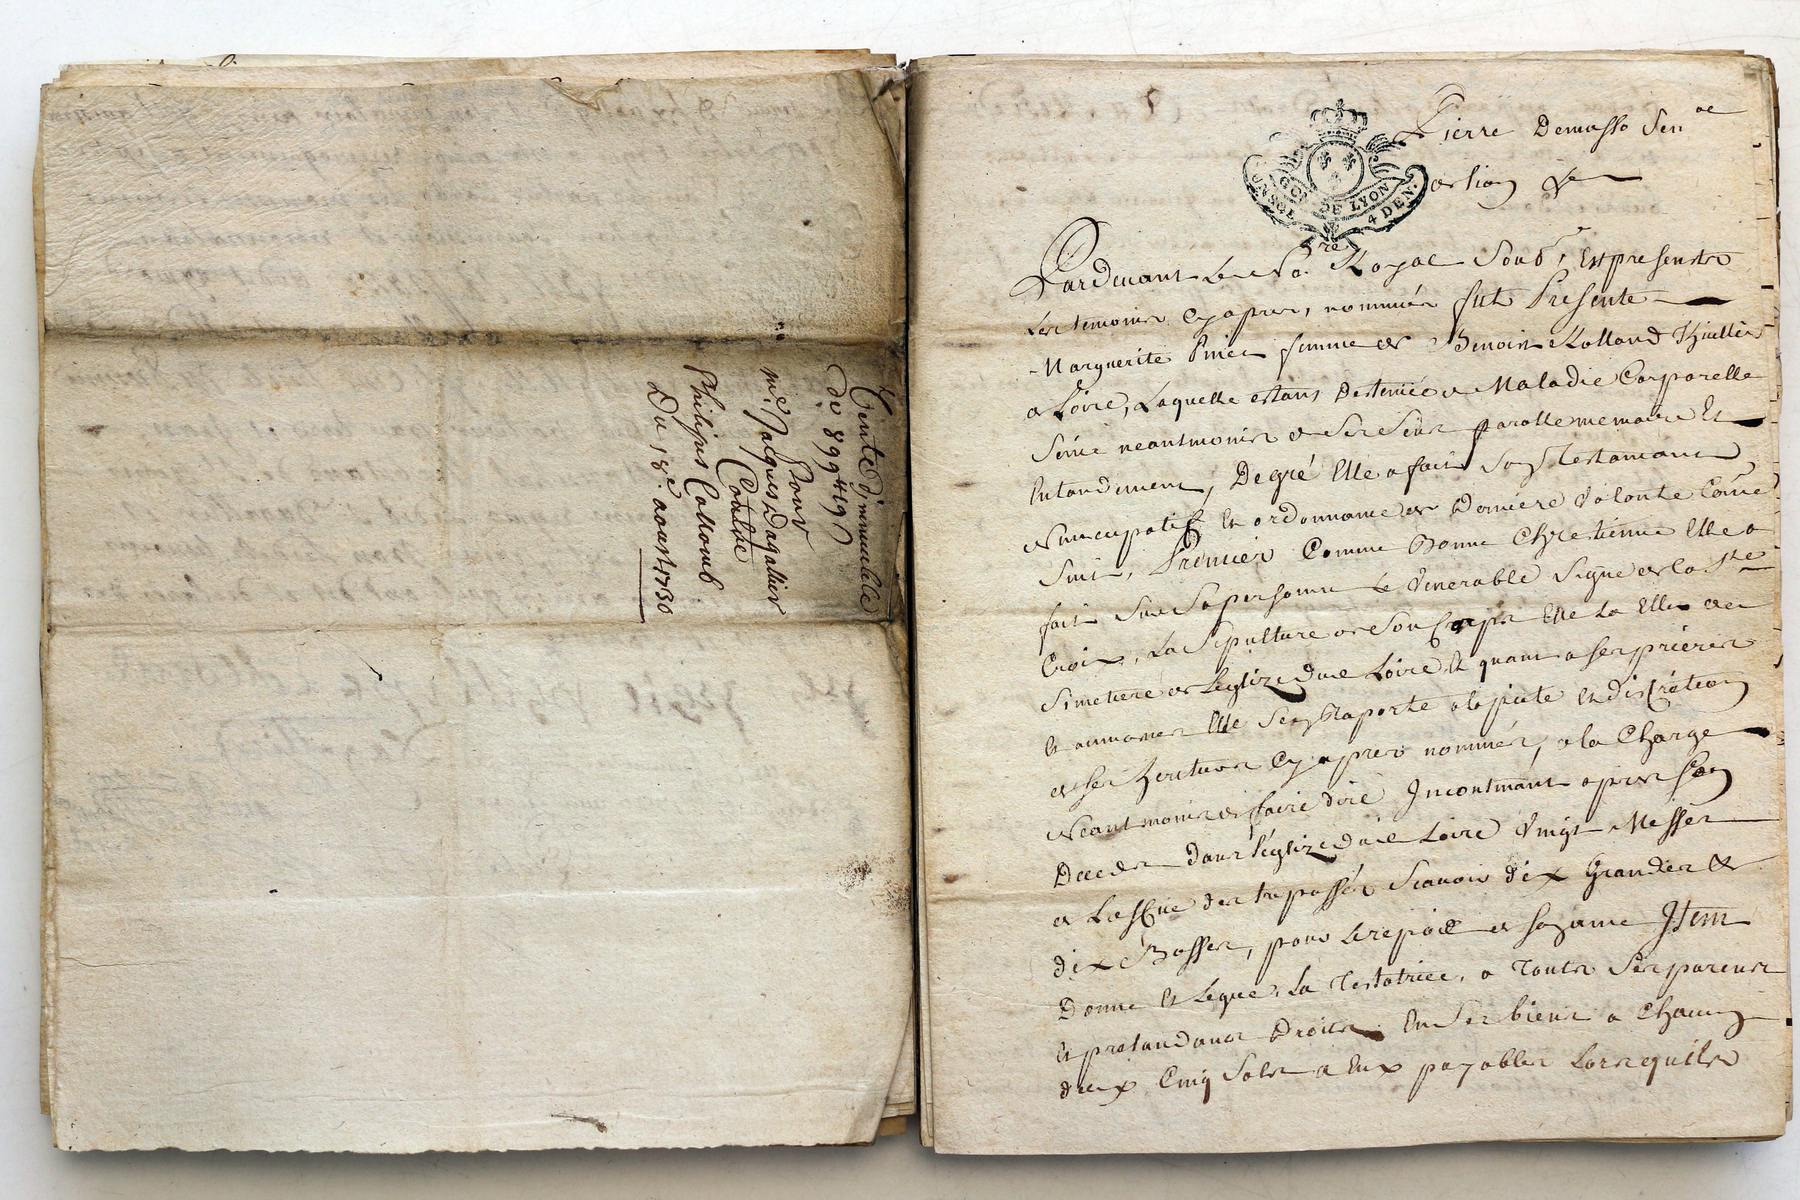 Vente d'immeuble
de 899lt 19s
Pour
me. Jacques Dagalier
Contre
Philipes Colloml
Du 18e. aoust 1730
Pierre Demasso Senal
de lion &a
GEN DE LYON
4 DEN.
Pardevant Le No.re Royal Sousé, Et presents
Les temoins Cy apres, nommés fut Presente
Marguerite femme de Benoist Rolland Thuillier
a Loire, Laquelle estans Destenüe de Maladie Corporelle
Seine neantmoins de Ses Sens parolle memoire Et
Entandement, De gré Elle a fait Son Testamant
Nuncupatif Et ordonnance de Derniere Volonté Comme
Suit, Premier Comme Bonne Chretienne Elle a
fait Sur Sa personne Le Venerable Signe de la Ste
Croix, La Sepulture de Son Corps Elle La Ellu au
Simetiere de L'eglize dud Loire Et quant a Ses prieres
Et aumones Elle Sen Raporte a la pieté Et discrétion
de Ses heritiers Cy apres nommés, a la Charge
Neantmoins de faire dire Incontinant apres Son
Deceds dans l'églize dud Loire Vingt Messes
de des trepassés Scavoir dix Grandes &
dix Basses, pour Le repos de Son ame Item
Donne Et Legue La Testatrice, a Touts Ses parents
Et pretandants Droits En Ses biens a Chacun
deux Cinq Sols a Eux payables Lorsquils